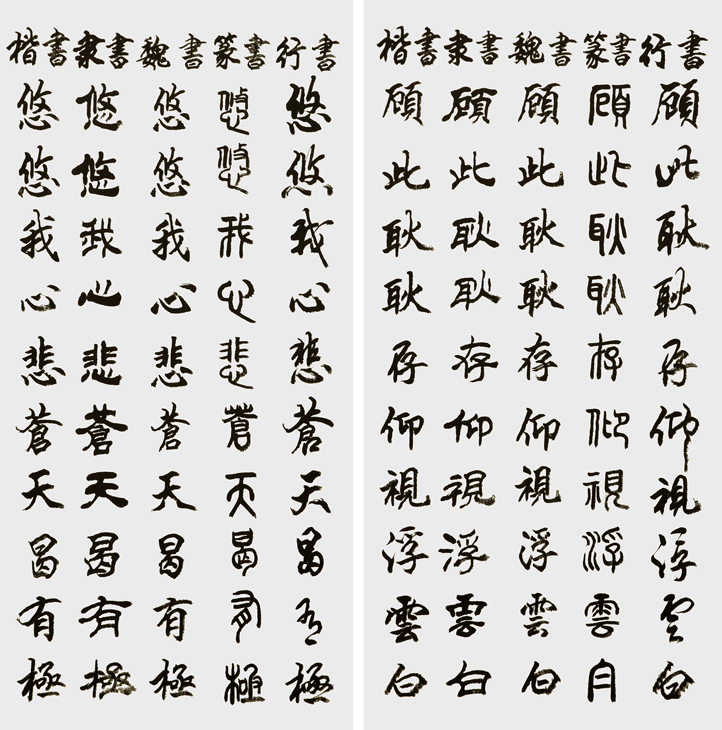 行書顧此耿耿存仰視浮雲白
篆書顧此耿耿存仰視浮雲白
魏書顧此耿耿存仰視浮雲白
隶書顧此耿耿存仰視浮雲白
楷書顧此耿耿存仰視浮雲白
行書悠悠我心悲蒼天曷有極
篆書悠悠我心悲蒼天曷有極
魏書悠悠我心悲蒼天曷有極
隶書悠悠我心悲蒼天曷有極
楷書悠悠我心悲蒼天曷有極